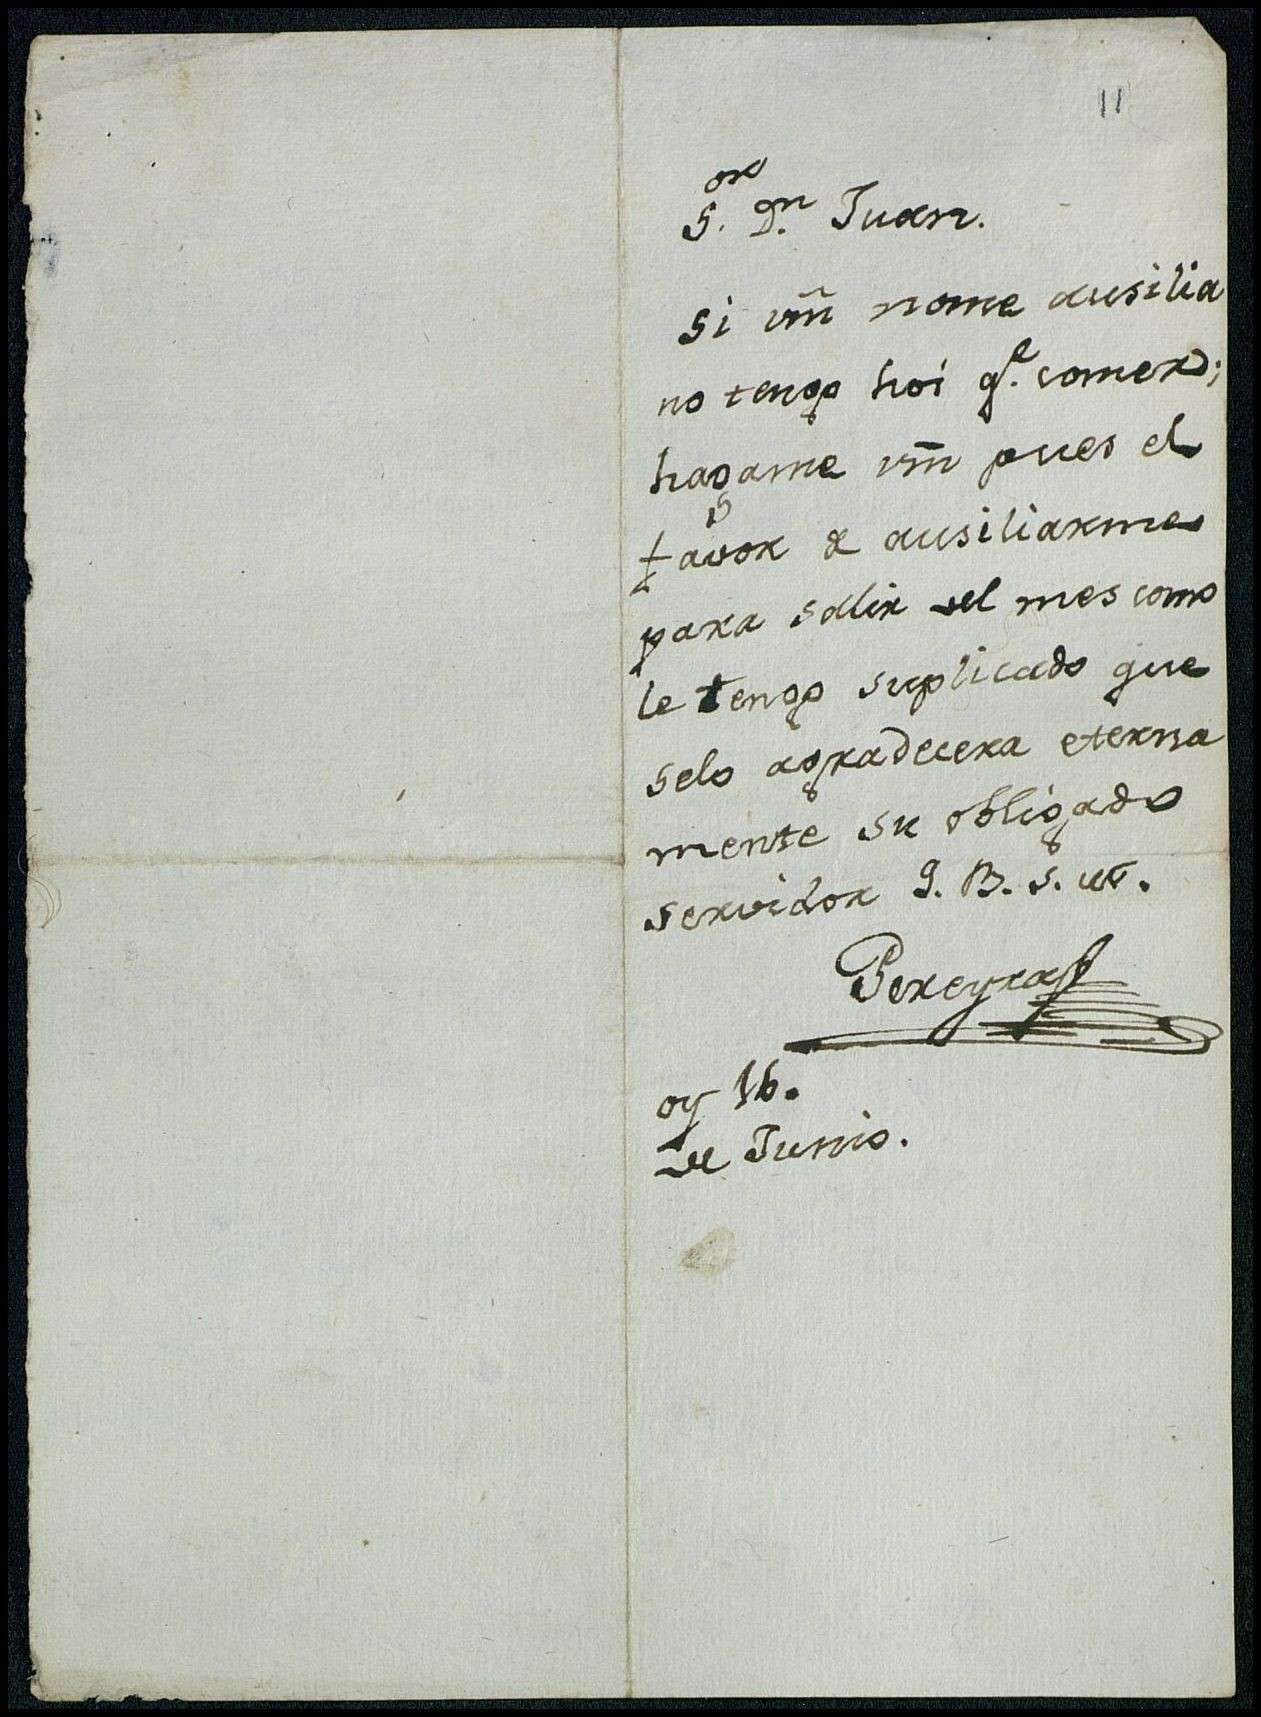 11
S.or Dn. Juan.
si vm̃ nome ausilia
no tengo hoi q.e comer;
hagame vm̃ pues el
favor de ausiliarme
para salir del mes como
le tengo suplicado que
selo agradecera eterna
mente su obligado
servidor Q. B. S. M.
Pereyra
oy 16.
de Junio.